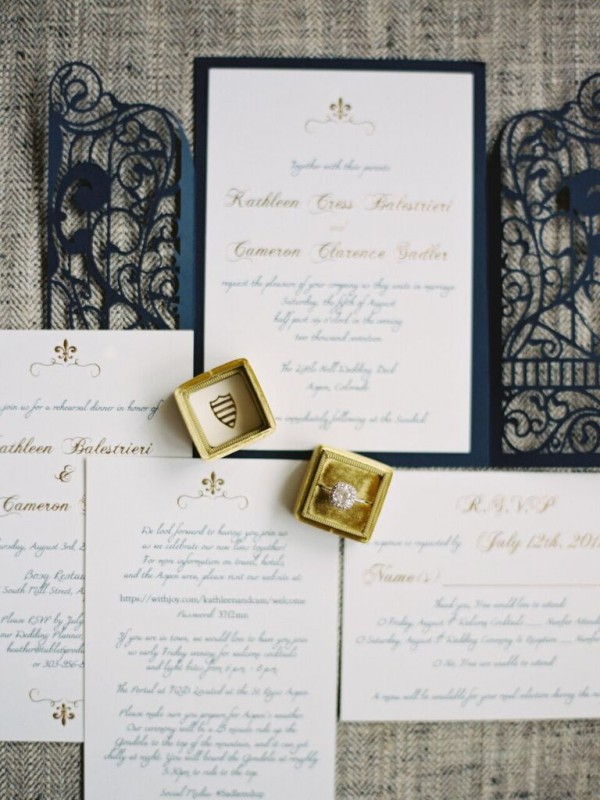 Together with their parents
Kathleen Cress Balestrieri
and
Cameron Clarence Sadler
request the pleasure of your company as they unite in marriage
Saturday, the fifth of August
half past six o'clock in the evening
two thousand seventeen
The Little Nell Wedding Deck
Aspen, Colorado
immediately following at the Sundeck
join us for a rehearsal dinner in honor of
Kathleen Balestrieri
&
Cameron
Thursday, August 3rd,
Bosq Restau
South Mill Street, A
Please RSVP by July
our Wedding Planner
or 303-
We look forward to having you join us
as we celebrate our new lives together!
For more information on travel, hotels,
and the Aspen area, please visit our website at:
https://withjoy.com/kathleenandcam/welcome
Password:
If you are in town, we would love to have you join
us early Friday evening for welcome cocktails
and light bites from 6 p.m. - 8 p.m.
The Portal at Located at the St Regis Aspen
Please make sure you prepare for Aspen's weather.
Our ceremony will be a 15 minute ride up the
Gondola to the top of the mountain, and it can get
chilly at night. You will board the Gondola at roughly
5:30pm to ride to the top.
Social Media:
R.S.V.P
response is requested by July 12th, 201
Name(s)
Thank you, I/we would love to attend:
O Friday, August 4th Welcome Cocktails Number Attend
O Saturday, August 5th Wedding Ceremony & Reception Number
O No, I/we are unable to attend
A menu will be available for your meal selection during the